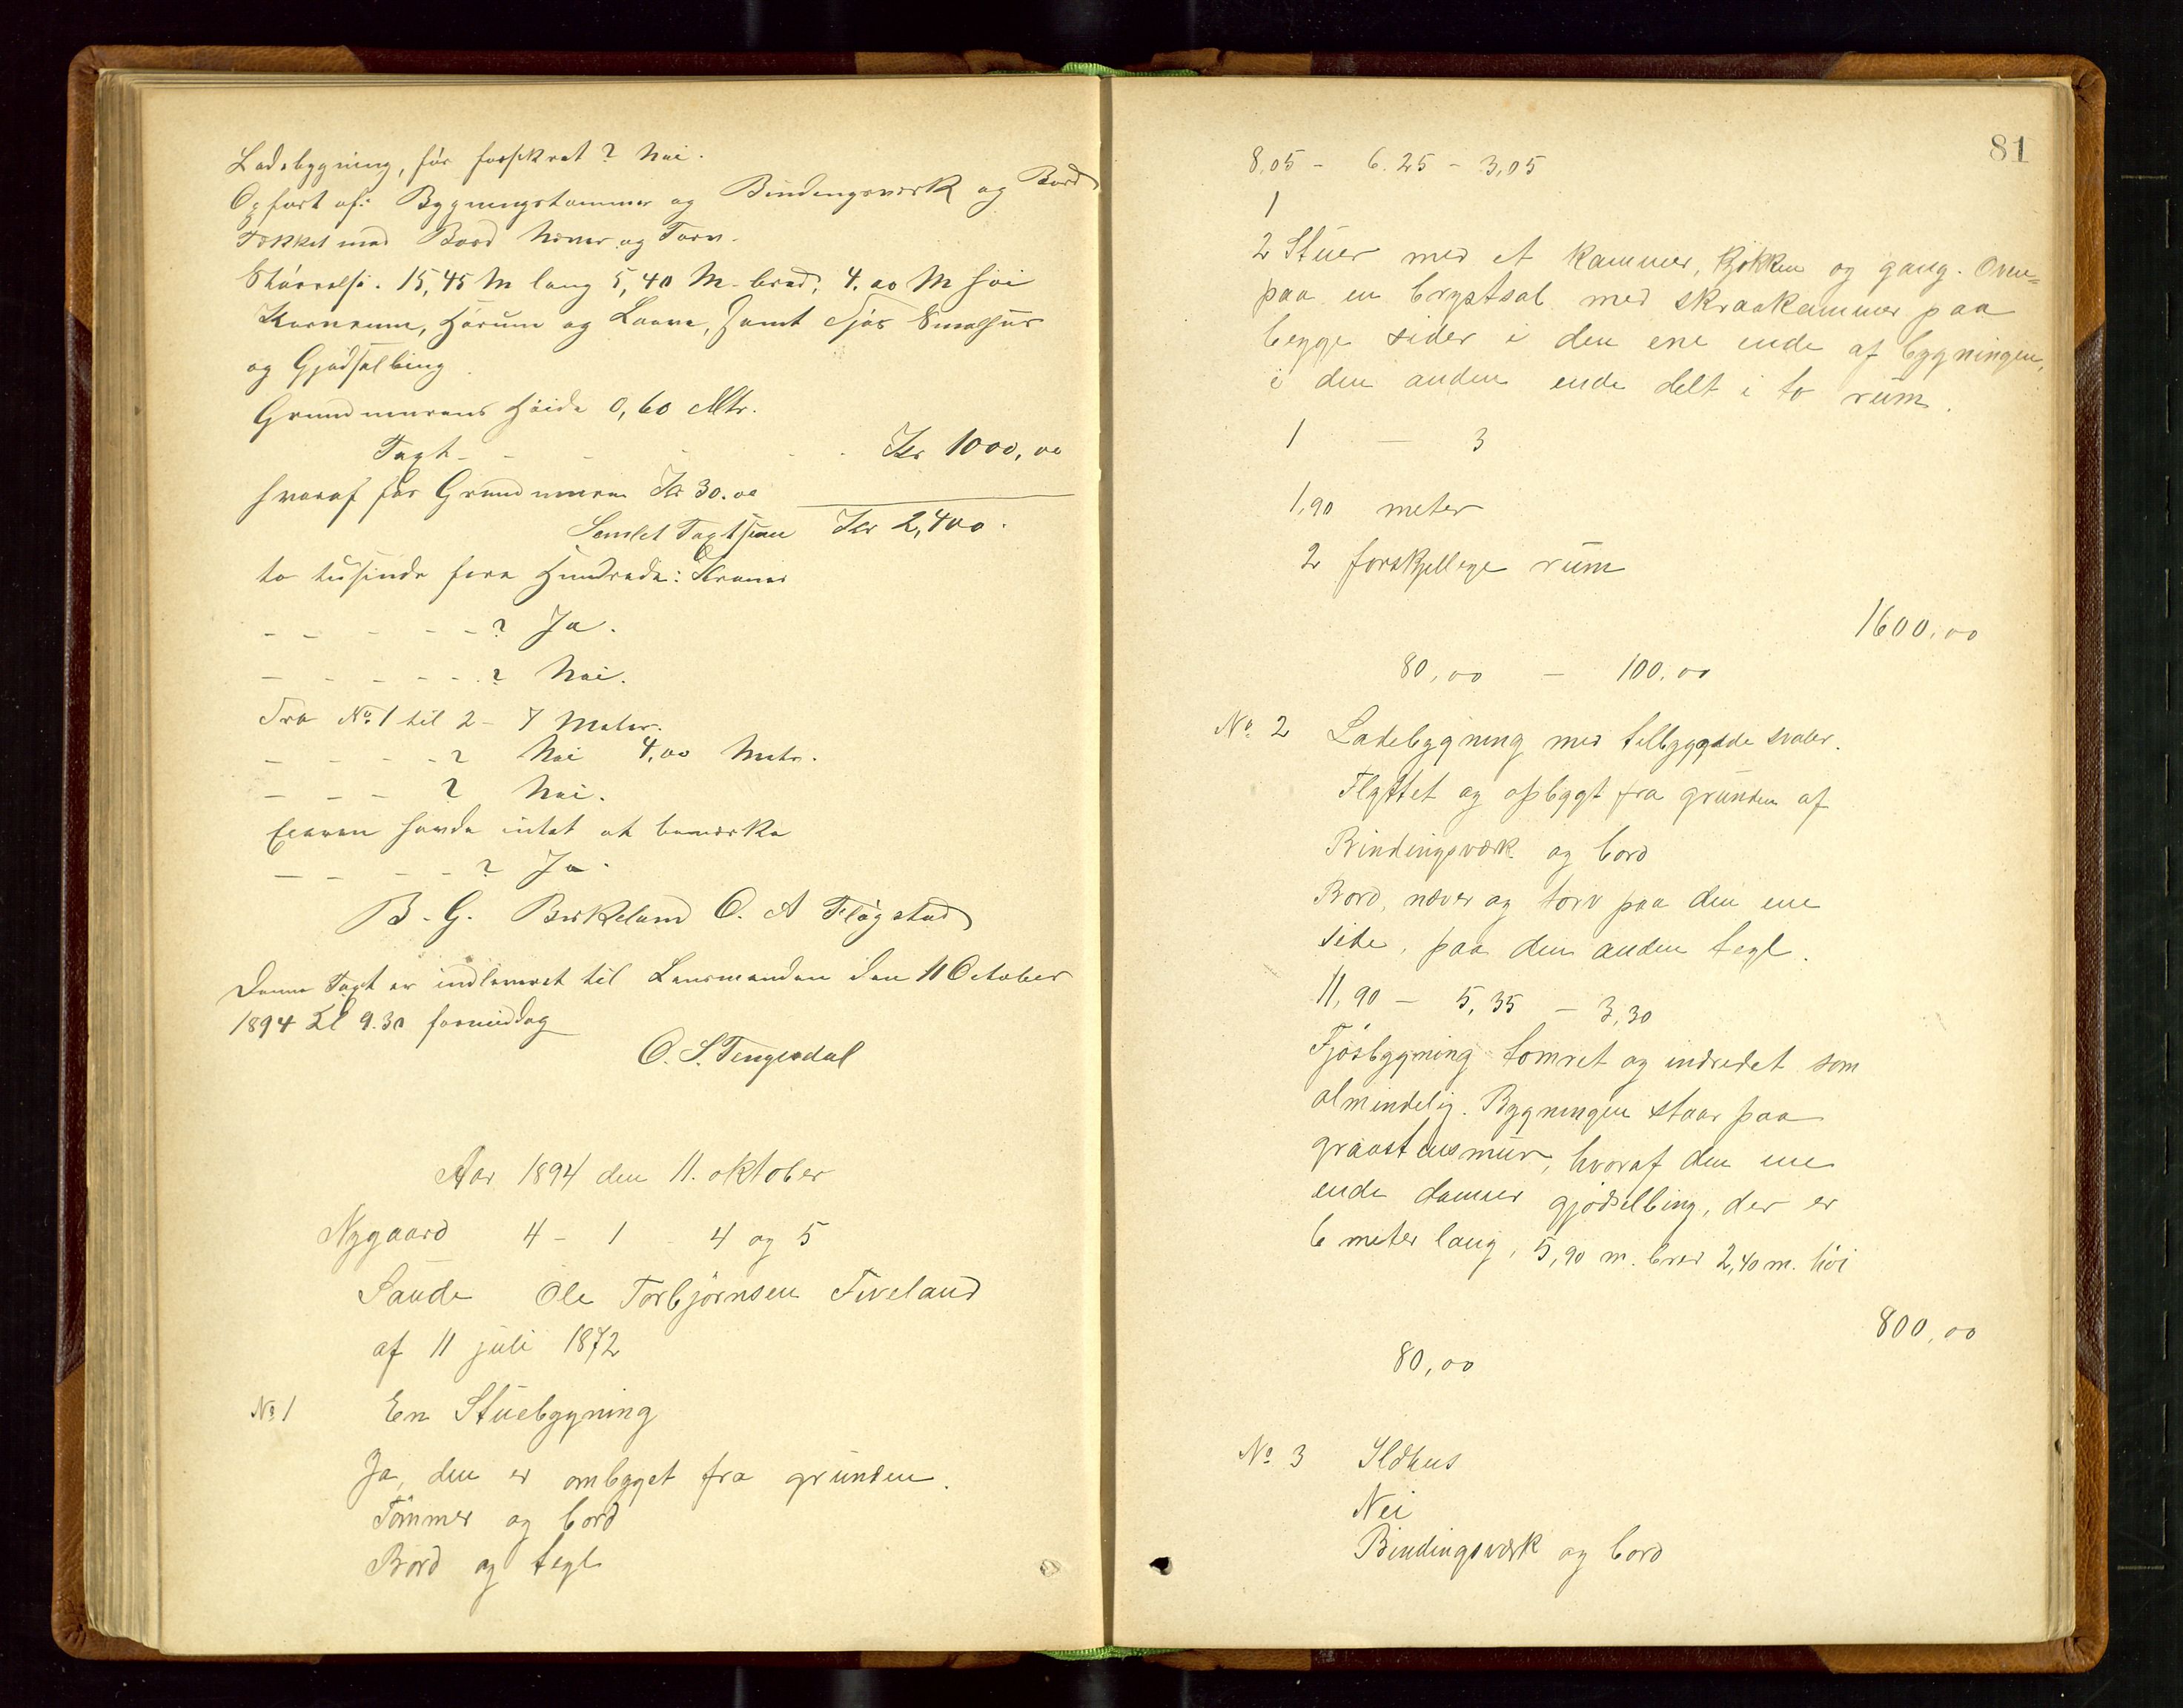 Ladebygning, før forsikret? Nei.
Opført af: Bygningstømmer og Bindingsværk og Bord
Tækket med Bord Næver og Torv.
Størrelse. 15,45 M lang 5,40 M. bred, 4.00 M høi
Kornrum, Hørum og Laave, samt Fjøs Smalhus
og Gjødselbing
Grundmurens Høide 0,60 Mtr.
Taxt - - - - - Kr 1000,00
hvoraf for Grundmuren Kr 30.00
Samlet Taxtsum Kr 2,400.
to tusinde fire Hundrede: Kroner
- - - - - ? Ja.
- - - - - ? Nei.
Fra No. 1 til 2 - 7 Meter.
- - - - ? Nei 4,00 Metr.
- - - ? Nei.
Eieren havde intet at bemærke
- - - - ? Ja.
B. G. Birkeland O. A Fløgstad
Denne Taxt er indleveret til Lensmanden den 11 October
1894 Kl 9.30 formiddag
O. S. Tengesdal
Aar 1894 den 11. oktober
Nygaard 4 - 1 - 4 og 5
Saude Ole Torbjørnsen Fiveland
af 11 juli 1872
No 1 En Stuebygning
Ja, den er ombygget fra grunden.
Tømmer og bord
Bord og tegl
81
8,05 - 6.25 - 3,05
1
2 Stuer med et kammer, kjøkken og gang. Oven=
paa en brystsal med skraakammer paa
begge sider i den ene ende af bygningen,
i den anden ende delt i to rum.
1 - 3
1,90 meter
2 forskjellige rum
1600,00
80,00 - 100,00
No. 2 Ladebygning med tilbyggede svaler.
Flyttet og opbygt fra grunden af
Bindingsværk og bord
Bord, næver og torv paa den ene
side, paa den anden tegl.
11,90 - 5,35 - 3,30
Fjøsbygning tømret og indredet som
almindelig. Bygningen staar paa
graastensmur, hvoraf den ene
ende danner gjødselbing, der er
6 meter lang, 5,90 m. bred 2,40 m. høi
800,00
80,00
No 3 Ildhus
Nei
Bindingsværk og bord